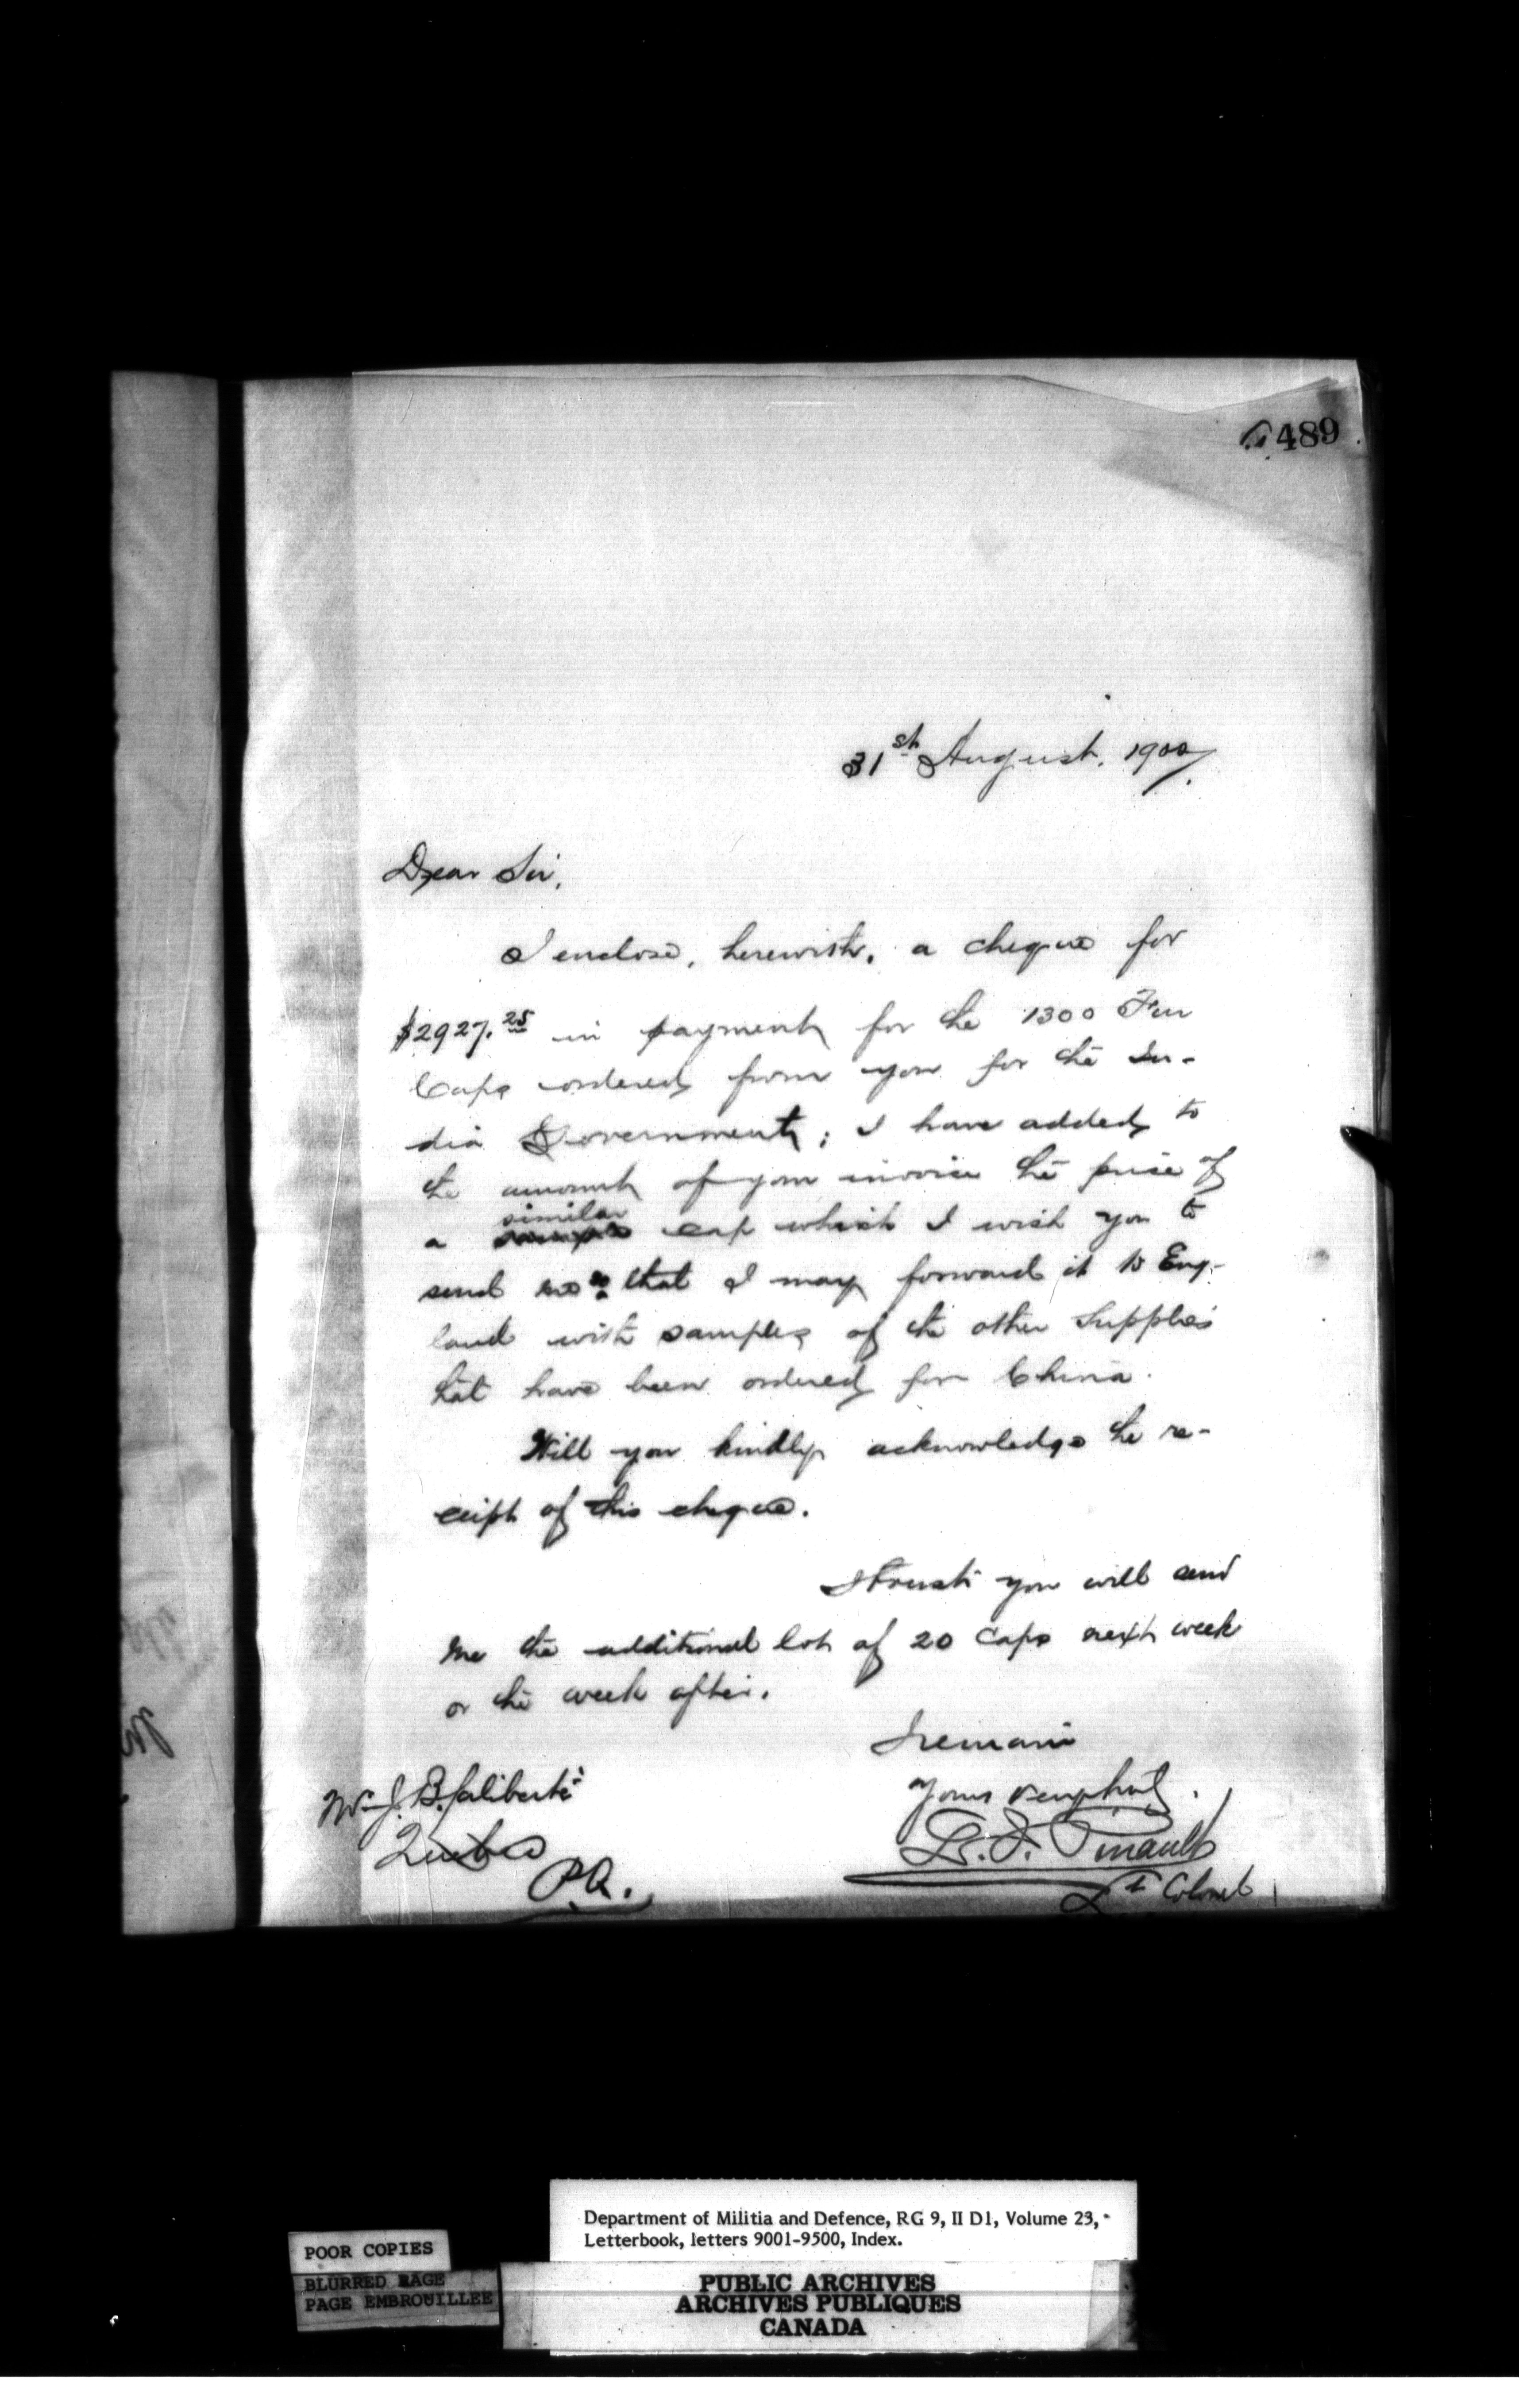 489
31st August. 1900
Dear Sir,
I enclose, herewith, a cheque for
$2927.25 in payment for the 1300 Fur
Caps ordered from you for the In-
dia Government; I have added to
the amount of your invoice the price of
a similar cap which I wish you to
send me so that I may forward it to Eng-
land with samples of the other supplies
that have been ordered for China.
Will you kindly acknowledge the re-
ceipt of this cheque.
I trust you will send
me the additional lot of 20 Caps next week
or the week after.
I remain
Yours
Mr J. B. Laliberté
Quebec
P.Q.
L. F. Pinault
Lt Colonel
Department of Militia and Defence, RG 9, II D1, Volume 23,
Letterbook, letters 9001-9500, Index.
POOR COPIES
BLURRED PAGE
PAGE EMBROUILLEE
PUBLIC ARCHIVES
ARCHIVES PUBLIQUES
CANADA